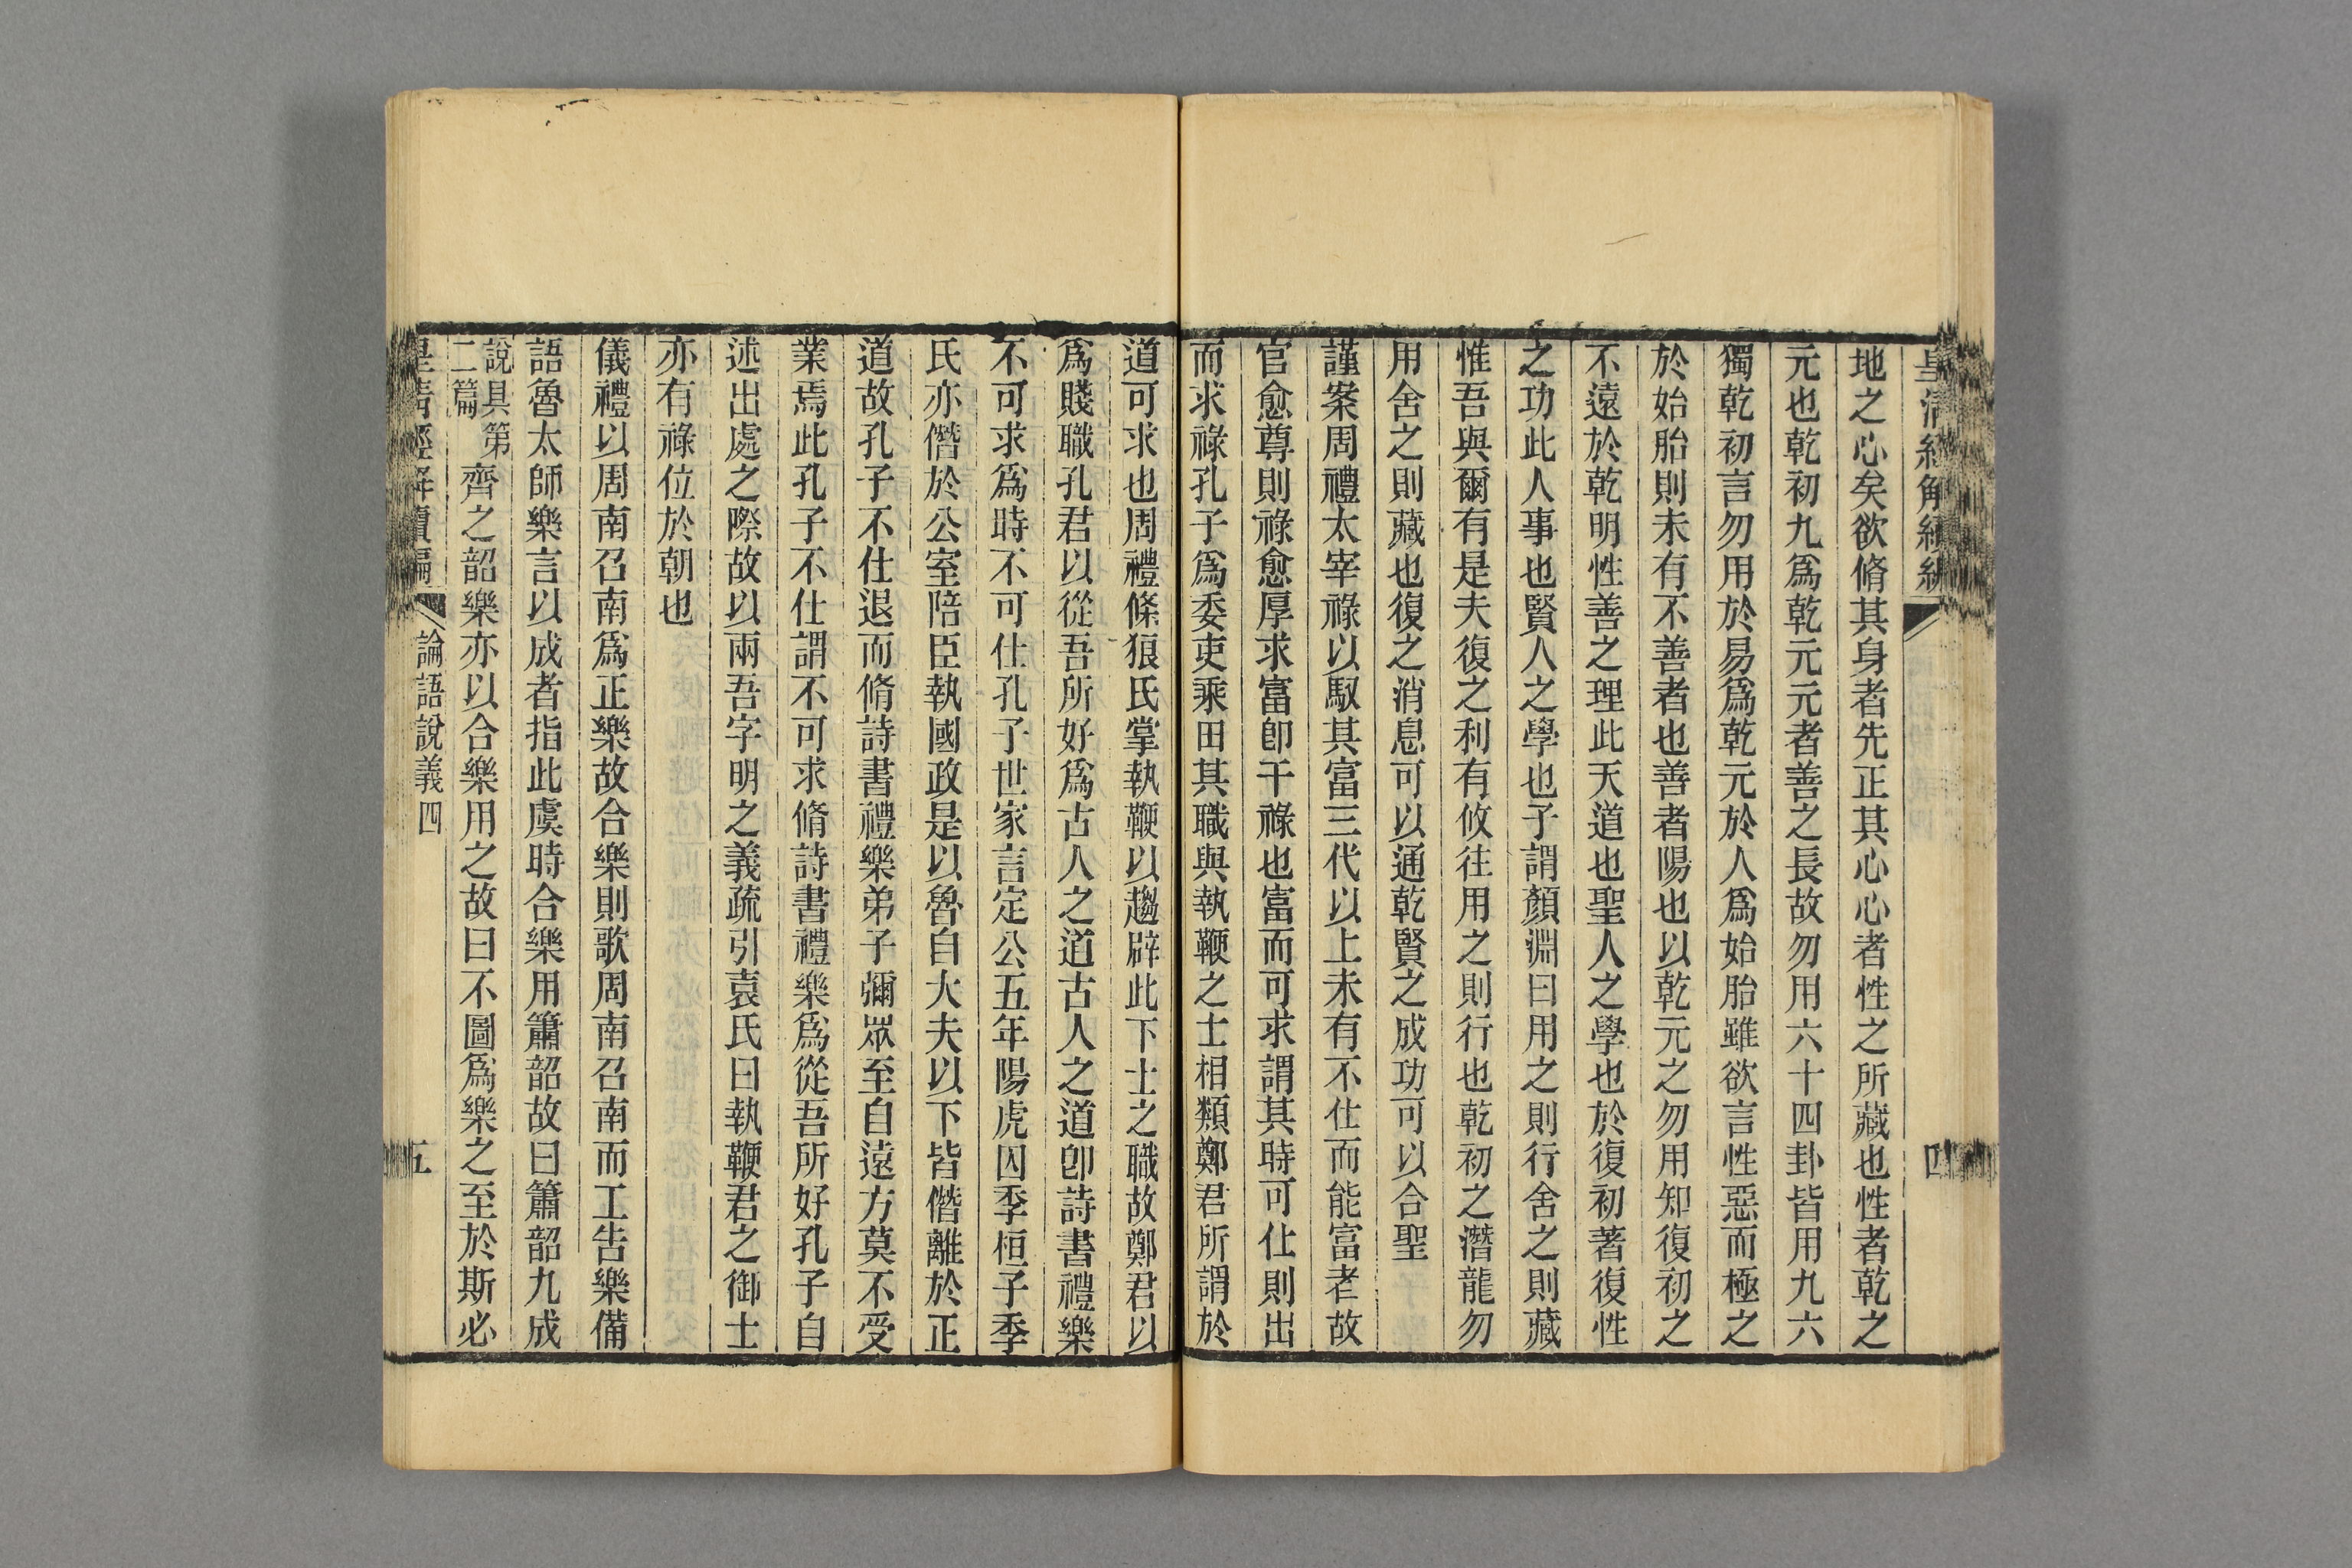 皇清經解續編
四
地之心矣欲脩其身者先正其心心者性之所藏也性者乾之
元也乾初九爲乾元元者善之長故勿用六十四卦皆用九六
獨乾初言勿用於易爲乾元於人爲始胎雖欲言性惡而極之
於始胎則未有不善者也善者陽也以乾元之勿用知復初之
不遠於乾明性善之理此天道也聖人之學也於復初著復性
之功此人事也賢人之學也子謂顏淵曰用之則行舍之則藏
惟吾與爾有是夫復之利有攸往用之則行也乾初之潛龍勿
用舍之則藏也復之消息可以通乾賢之成功可以合聖
謹案周禮太宰祿以馭其富三代以上未有不仕而能富者故
官愈尊則祿愈厚求富卽干祿也富而可求謂其時可仕則出
而求祿孔子爲委吏乘田其職與執鞭之士相類鄭君所謂於
道可求也周禮條狼氏掌執鞭以趨辟此下士之職故鄭君以
爲賤職孔君以從吾所好爲古人之道古人之道卽詩書禮樂
不可求爲時不可仕孔子世家言定公五年陽虎囚季桓子季
氏亦僭於公室陪臣執國政是以魯自大夫以下皆僭離於正
道故孔子不仕退而脩詩書禮樂弟子彌眾至自遠方莫不受
業焉此孔子不仕謂不可求脩詩書禮樂爲從吾所好孔子自
述出處之際故以兩吾字明之義疏引袁氏曰執鞭君之御士
亦有祿位於朝也
儀禮以周南召南爲正樂故合樂則歌周南召南而工告樂備
語魯太師樂言以成者指此虞時合樂用簫韶故曰簫韶九成
說具第
二篇
齊之韶樂亦以合樂用之故曰不圖爲樂之至於斯必
皇清經解續編
論語說義四
五